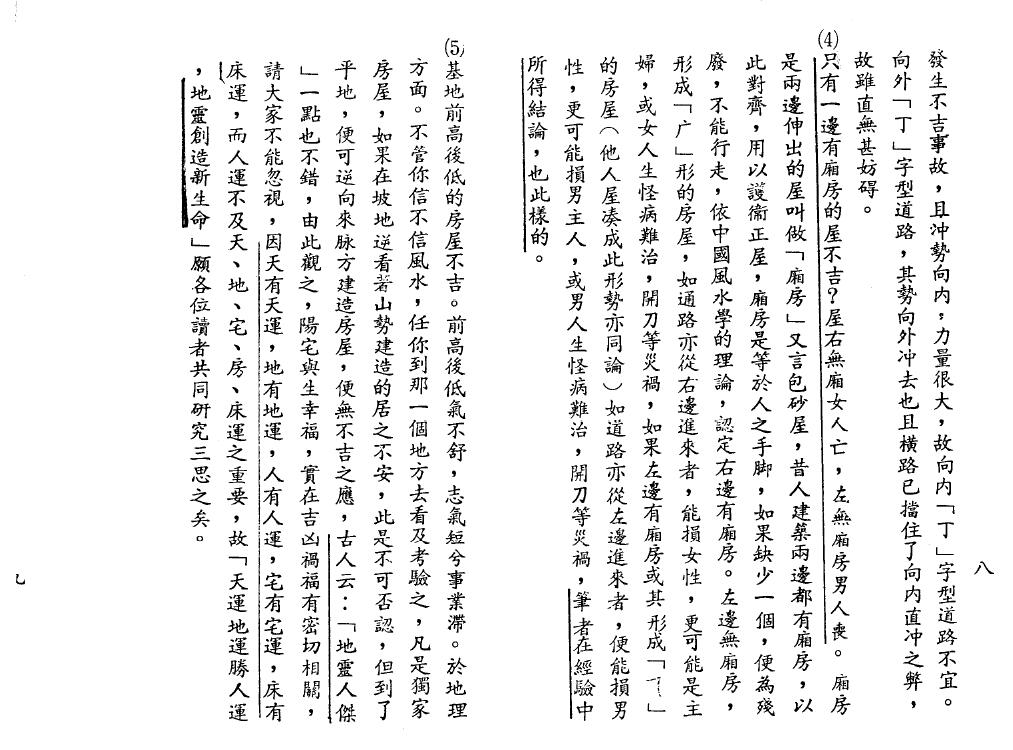 發生不吉事故，且冲勢向內，力量很大，故向內「丁」字型道路不宜。
向外「丁」字型道路，其勢向外冲去也且橫路已擋住了向內直冲之弊，
故雖直無甚妨碍。
(4)只有一邊有廂房的屋不吉？屋右無廂女人亡，左無廂房男人喪。廂房
是兩邊伸出的屋叫做「廂房」又言包砂屋，昔人建築兩邊都有廂房，以
此對齊，用以護衞正屋，廂房是等於人之手脚，如果缺少一個，便為殘
廢，不能行走，依中國風水學的理論，認定右邊有廂房。左邊無廂房，
形成「广」形的房屋，如通路亦從右邊進來者，能損女性，更可能是主
婦，或女人生怪病難治，開刀等災禍，如果左邊有廂房或其形成「」
的房屋（他人屋凑成此形勢亦同論）如道路亦從左邊進來者，便能損男
性，更可能損男主人，或男人生怪病難治，開刀等災禍，筆者在經驗中
所得結論，也此樣的。
八
(5)基地前高後低的房屋不吉。前高後低氣不舒，志氣短兮事業滯。於地理
方面。不管你信不信風水，任你到那一個地方去看及考驗之，凡是獨家
房屋，如果在坡地逆看著山勢建造的居之不安，此是不可否認，但到了
平地，便可逆向來脉方建造房屋，便無不吉之應，古人云：「地靈人傑
」一點也不錯，由此觀之，陽宅與生幸福，實在吉凶禍福有密切相關，
請大家不能忽視，因天有天運，地有地運，人有人運，宅有宅運，床有
床運，而人運不及天、地、宅、房、床運之重要，故「天運地運勝人運
，地靈創造新生命」願各位讀者共同研究三思之矣。
九